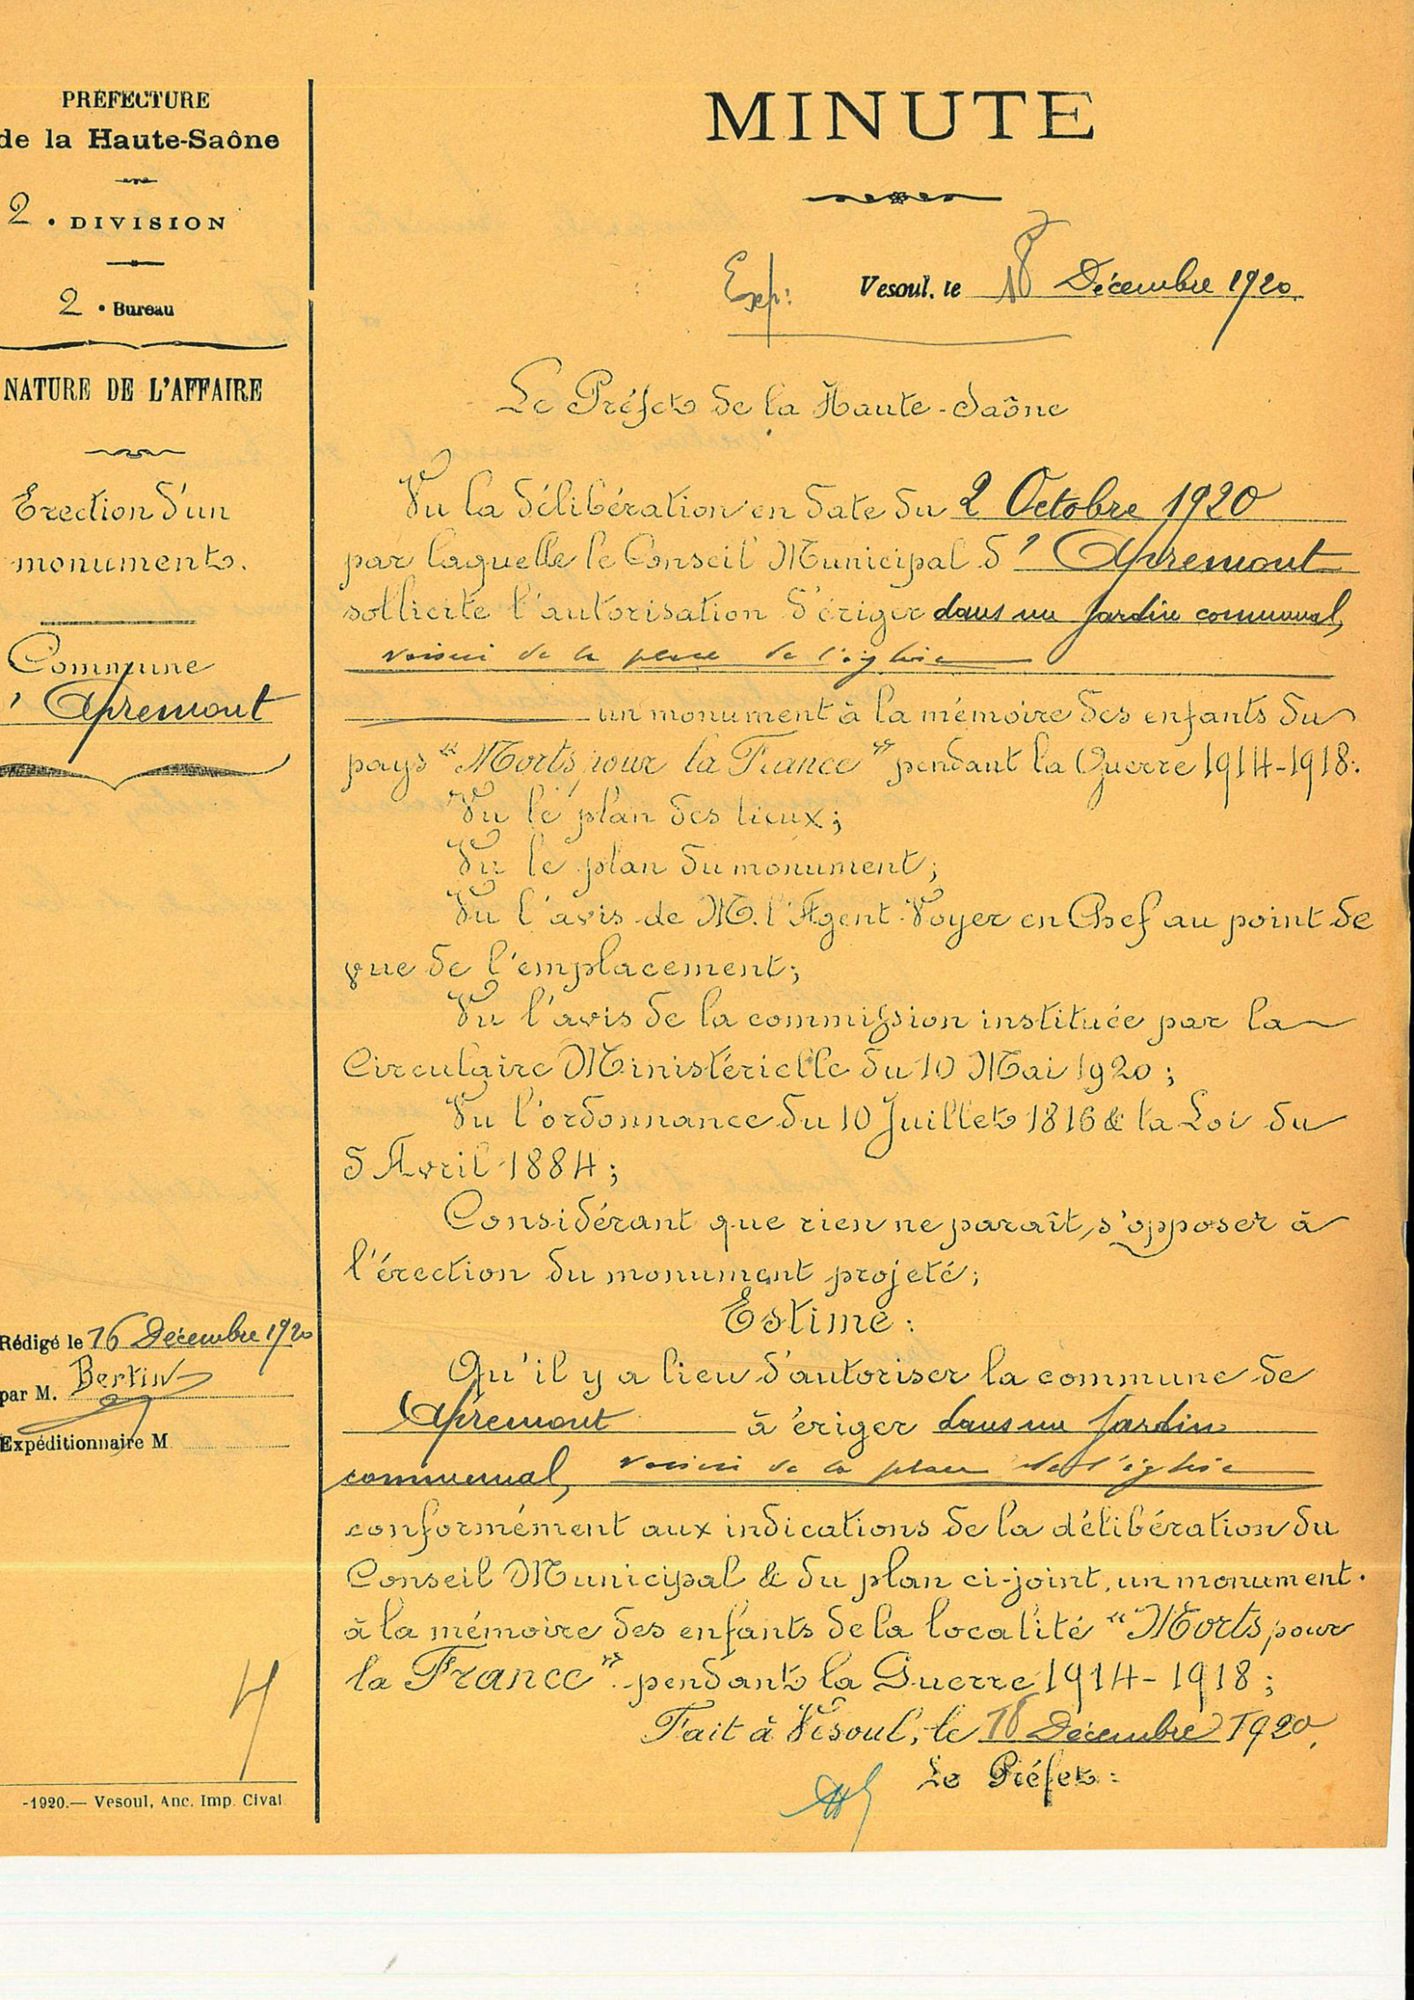 PRÉFECTURE
de la Haute-Saône
2e DIVISION
2e Bureau
NATURE DE L'AFFAIRE
Erection d'un
monument.
Commune
d' Apremont
Rédigé le 16 Décembre 1920
par M. Bertin
Expéditionnaire M
4
-1920.— Vesoul, Anc. Imp. Cival
MINUTE
Exp: Vesoul, le 18 Décembre 1920.
Le Préfet de la Haute-Saône
Vu la délibération en date du 2 Octobre 1920
par laquelle le Conseil Municipal d' Apremont
sollicite l'autorisation d'ériger dans un jardin communal,
voisin de la place de l'église
un monument à la mémoire des enfants du
pays "Morts pour la France" pendant la Guerre 1914-1918.
Vu le plan des lieux;
Vu le plan du monument;
Vu l'avis de M. l'Agent-Voyer en Chef au point de
vue de l'emplacement;
Vu l'avis de la commission instituée par la
Circulaire Ministérielle du 10 Mai 1920;
Vu l'ordonnance du 10 Juillet 1816 & la Loi du
5 Avril 1884;
Considérant que rien ne paraît s'opposer à
l'érection du monument projeté;
Estime:
Qu'il y a lieu d'autoriser la commune de
Apremont à ériger dans un jardin
communal, voisin de la place de l'église
conformément aux indications de la délibération du
Conseil Municipal & du plan ci-joint, un monument
à la mémoire des enfants de la localité "Morts pour
la France" pendant la Guerre 1914-1918;
Fait à Vesoul, le 18 Décembre 1920.
Le Préfet: